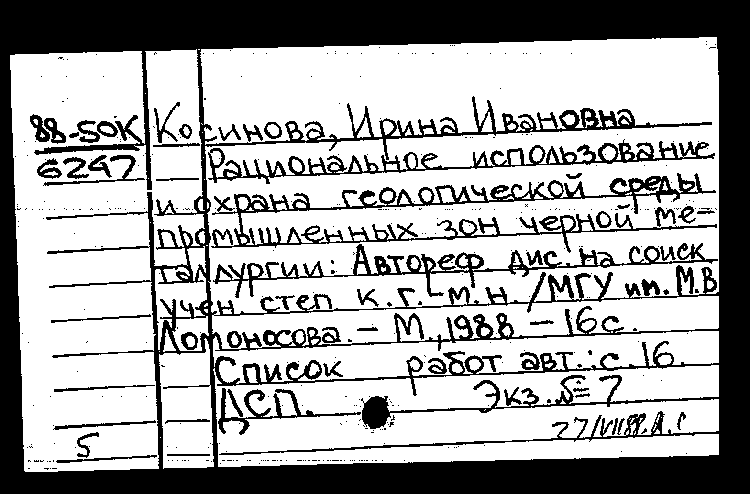 88-50К Косинова, Ирина Ивановна.
6247 Рациональное использование
и охрана геологической среды
промышленных зон черной ме-
таллургии: Автореф. дис. на соиск.
учен. степ. к.г.-м.н. /МГУ им. М.В.
Ломоносова. - М., 1988. - 16с.
Список работ авт.: с. 16.
ДСП. Экз. № 7
27/VII88. А.С
5